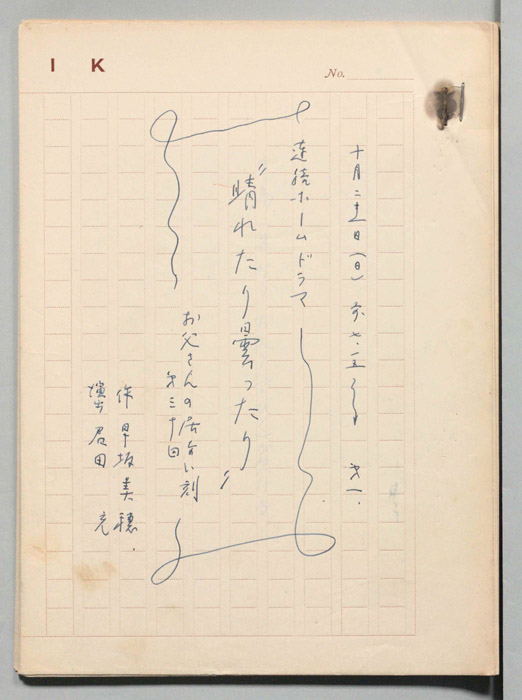 I K
No.
十月二十一日(日) 后七・一五〜 第一.
連続ホームドラマ
"晴れたり曇ったり"
お父さんの居合い刻
第三十回
作 早坂美穂.
演出 君田 亮